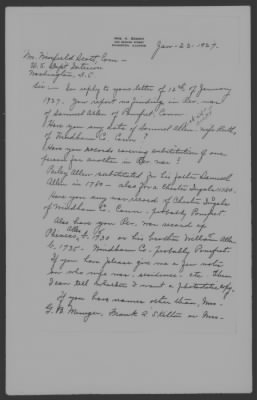 Jan-22-1927.
Mr. Winfield Scott, Com—
U.S. Dept Interior
Washington, D.C.
Sir— In reply to your letter of 12th of January
1927. You report no finding in Rev. war
of Samuel Allen of Pomfret, Conn.
Have you any data of Samuel Allen - wife Ruth,
of Windham Co. Conn.?
Have you records covering substitution of one
person for another in Rev. war?
Allen substituted for his father Samuel
Allen in 1780 — also for a Chester Ingals
Have you any war record of Chester Ingals
of Windham Co. Conn. - probably Pomfret
Also have you Rev. war record of
Allen b. 1730 or his brother William Allen
b. 1735- Windham Co. probably Pomfret
If you have please give me a few notes
on who wife was - residence - etc. Then
I can tell whether I want a photostatic copy.
If you have names other than, Mrs.
G. B. Munger, Frank A. or Mrs-